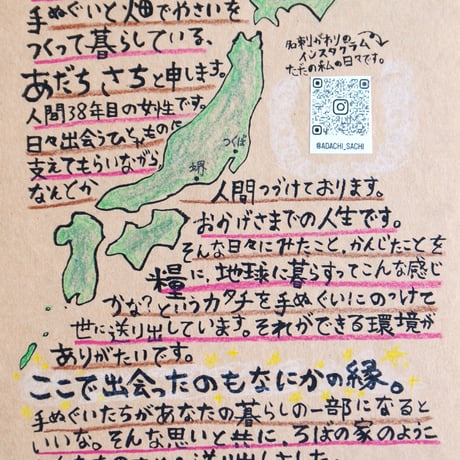 手ぬぐいと畑でやさいを
つくって暮らしている、
あだち さちと申します。
人間38年目の女性です。
日々出会うひと、ものに
支えてもらいながら
なんとか
人間つづけております。
おかげさまでの人生です。
そんな日々にみたこと、かんじたことを
糧に、地球に暮らすってこんな感じ
かな?というカタチを手ぬぐいにのっけて
世に送り出しています。それができる環境が
ありがたいです。
ここで出会ったのもなにかの縁。
手ぬぐいたちがあなたの暮らしの一部になると
いいな。そんな思いと共に、ろばの家のように
名刺がわりの
インスタグラム
ただの私の日々です。
@ADACHI_SACHI
つくば
堺